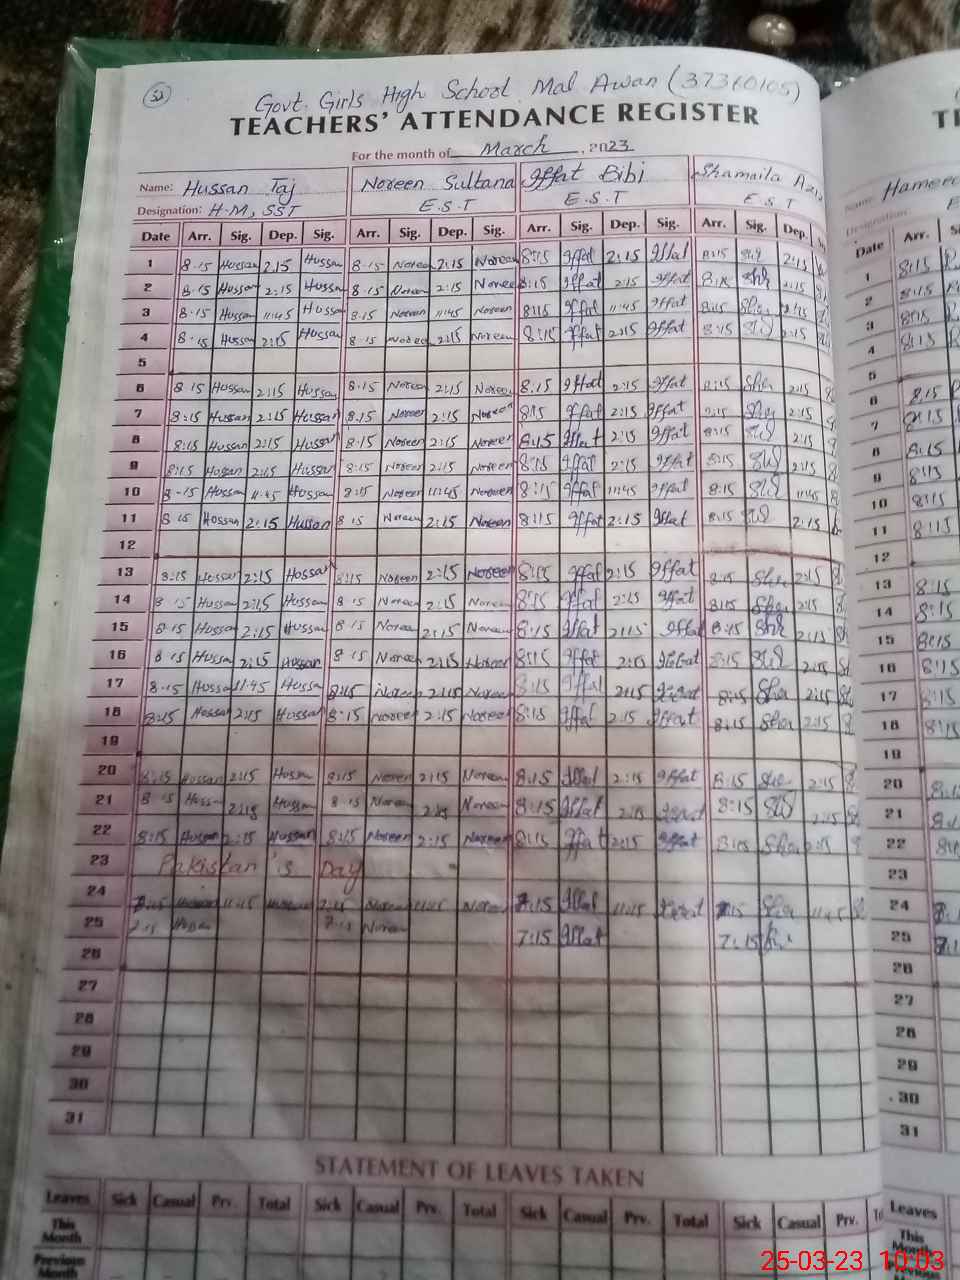 32
Govt. Girls High School Mal Awan (37360105)
TEACHERS' ATTENDANCE REGISTER
For the month of March, 2023
Name: Hussan Taj Noreen Sultana Iffat Bibi Shamaila
Designation: H.M, SST E.S.T E.S.T E.S.T
Date Arr. Sig. Dep. Sig. Arr. Sig. Dep. Sig. Arr. Sig. Dep. Sig. Arr. Sig. Dep.
1 8.15 Hussan 2:15 Hussan 8.15 Noreen 2:15 Noreen 8:15 Iffat 2:15 Iffat 8:15 2:15
2 8.15 Hussan 2:15 Hussan 8.15 Noreen 2:15 Noreen 8:15 Iffat 2:15 Iffat 8:15 2:15
3 8.15 Hussan 11:45 Hussan 8.15 Noreen 11:45 Noreen 8:15 Iffat 11:45 Iffat 8:15
4 8.15 Hussan 2:15 Hussan 8.15 Noreen 2:15 Noreen 8:15 Iffat 2:15 Iffat 8:15 2:15
5
6 8.15 Hussan 2:15 Hussan 8.15 Noreen 2:15 Noreen 8.15 Iffat 2:15 Iffat 8:15 2:15
7 8:15 Hussan 2:15 Hussan 8.15 Noreen 2:15 Noreen 8:15 Iffat 2:15 Iffat 2:15
8 8:15 Hussan 2:15 Hussan 8.15 Noreen 2:15 Noreen 8:15 Iffat 2:15 Iffat 8:15 2:15
9 8:15 Hussan 2:15 Hussan 8:15 Noreen 2:15 Noreen 8:15 Iffat 2:15 Iffat 8:15 2:15
10 8.15 Hussan 11:45 Hussan 8:15 Noreen 11:45 Noreen 8:15 Iffat 11:45 Iffat 8:15 11:45
11 8.15 Hussan 2:15 Hussan 8.15 Noreen 2:15 Noreen 8:15 Iffat 2:15 Iffat 8:15 2:15
12
13 8:15 Hussan 2:15 Hussan 8:15 Noreen 2:15 Noreen 8:15 Iffat 2:15 Iffat 8:15 2:15
14 8.15 Hussan 2:15 Hussan 8.15 Noreen 2:15 Noreen 8:15 Iffat 2:15 Iffat 8:15 2:15
15 8.15 Hussan 2:15 Hussan 8.15 Noreen 2:15 Noreen 8:15 Iffat 2:15 Iffat 8:15 2:15
16 8.15 Hussan 2:15 Hussan 8.15 Noreen 2:15 Noreen 8:15 Iffat 2:15 Iffat 8:15 2:15
17 8.15 Hussan 11:45 Hussan 8:15 Noreen 2:15 Noreen 8:15 Iffat 2:15 Iffat 8:15 2:15
18 8:15 Hussan 2:15 Hussan 8:15 Noreen 2:15 Noreen 8:15 Iffat 2:15 Iffat 8:15 2:15
19
20 8:15 Hussan 2:15 Hussan 8:15 Noreen 2:15 Noreen 8:15 Iffat 2:15 Iffat 8:15 2:15
21 8.15 Hussan 2:15 Hussan 8.15 Noreen 2:15 Noreen 8:15 Iffat 2:15 Iffat 8:15 2:15
22 8:15 Hussan 2:15 Hussan 8:15 Noreen 2:15 Noreen 8:15 Iffat 2:15 Iffat 8:15 2:15
23 Pakistan's Day
24 7:15 11:45 Noreen 11:45 Noreen 7:15 Iffat 11:15 Iffat 7:15 11:45
25 Noreen 7:15 Iffat 7:15
26
27
28
29
30
31
STATEMENT OF LEAVES TAKEN
Leaves Sick Casual Prv. Total Sick Casual Prv. Total Sick Casual Prv. Total Sick Casual Prv.
This Month
Previous Month
Name:
Designation:
Date Arr.
1 8:15
2 8:15
3 8:15
4 8:15
5
6 8:15
7 8:15
8 8:15
9 8:15
10 8:15
11 8:15
12
13 8:15
14 8:15
15 8:15
16 8:15
17 8:15
18 8:15
19
20
21
22
23
24
25
26
27
28
29
30
31
Leaves
This Month
Previous
25-03-23 10:03